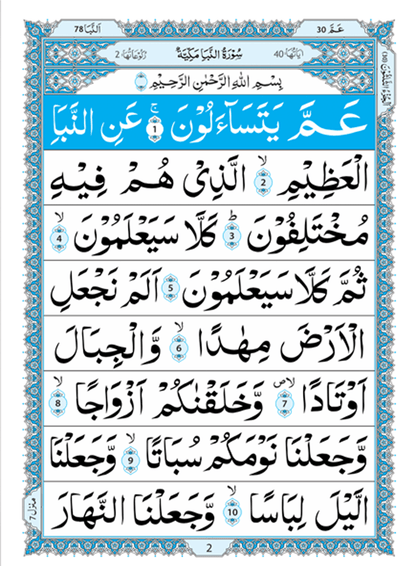 اَلنَّبَا 78 عَـمَّ 30
رُكُوْعَاتُهَا: 2 سُوْرَةُ النَّبَاِ مَكِّيَّةٌ اٰيَاتُهَا: 40
بِسْمِ اللّٰهِ الرَّحْمٰنِ الرَّحِيْمِ
عَمَّ يَتَسَآءَلُوْنَ ۚ 1 عَنِ النَّبَاِ
الْعَظِيْمِ ۙ 2 الَّذِيْ هُمْ فِيْهِ
مُخْتَلِفُوْنَ ؕ 3 كَلَّا سَيَعْلَمُوْنَ ۙ 4
ثُمَّ كَلَّا سَيَعْلَمُوْنَ 5 اَلَمْ نَجْعَلِ
الْاَرْضَ مِهٰدًا ۙ 6 وَّالْجِبَالَ
اَوْتَادًا ۙ 7 وَّخَلَقْنٰكُمْ اَزْوَاجًا ۙ 8
وَّجَعَلْنَا نَوْمَكُمْ سُبَاتًا ۙ 9 وَّجَعَلْنَا
الَّيْلَ لِبَاسًا ۙ 10 وَّجَعَلْنَا النَّهَارَ
مَنْزِل 7
2